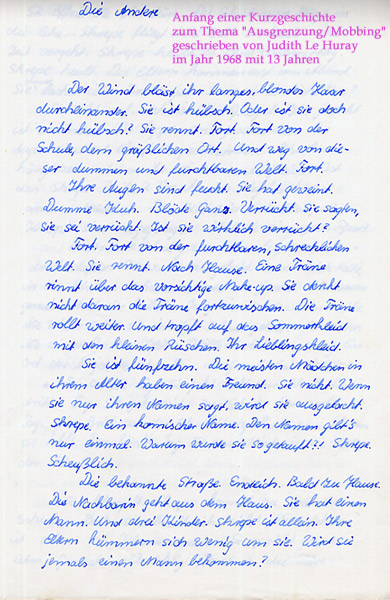 Die Andere
Anfang einer Kurzgeschichte
zum Thema "Ausgrenzung/Mobbing"
geschrieben von Judith Le Huray
im Jahr 1968 mit 13 Jahren
Der Wind bläst ihr langes, blondes Haar
durcheinander. Sie ist hübsch. Oder ist sie doch
nicht hübsch? Sie rennt. Fort. Fort von der
Schule, dem gräßlichen Ort. Und weg von die-
ser dummen und furchtbaren Welt. Fort.
Ihre Augen sind feucht. Sie hat geweint.
Dumme Kuh. Blöde Gans. Verrückt. Sie sagten,
sie sei verrückt. Ist sie wirklich verrückt?
Fort. Fort von der furchtbaren, schrecklichen
Welt. Sie rennt. Nach Hause. Eine Träne
rinnt über das vorsichtige Make-up. Sie denkt
nicht daran die Träne fortzuwischen. Die Träne
rollt weiter. Und tropft auf das Sommerkleid
mit den kleinen Rüschen. Ihr Lieblingskleid.
Sie ist fünfzehn. Die meisten Mädchen in
ihrem Alter haben einen Freund. Sie nicht. Wenn
sie nur ihren Namen sagt, wird sie ausgelacht.
Ein komischer Name. Den Namen gibt's
nur einmal. Warum wurde sie so getauft?!
Scheußlich.
Die bekannte Straße. Endlich. Bald zu Hause.
Die Nachbarin geht aus dem Haus. Sie hat einen
Mann. Und drei Kinder. ist allein. Ihre
Eltern kümmern sich wenig um sie. Wird sie
jemals einen Mann bekommen?